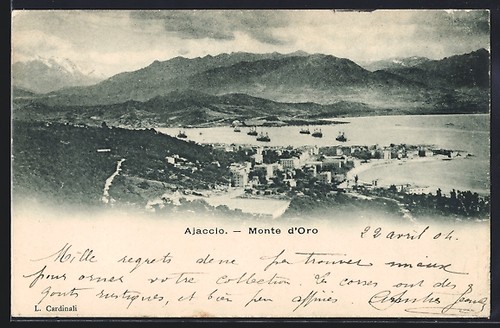 Ajaccio. — Monte d'Oro
22 avril 04.
Mille regrets de ne pas trouver mieux
pour orner votre collection. Les corses ont des
gouts rustiques, et bien peu affinés
L. Cardinali